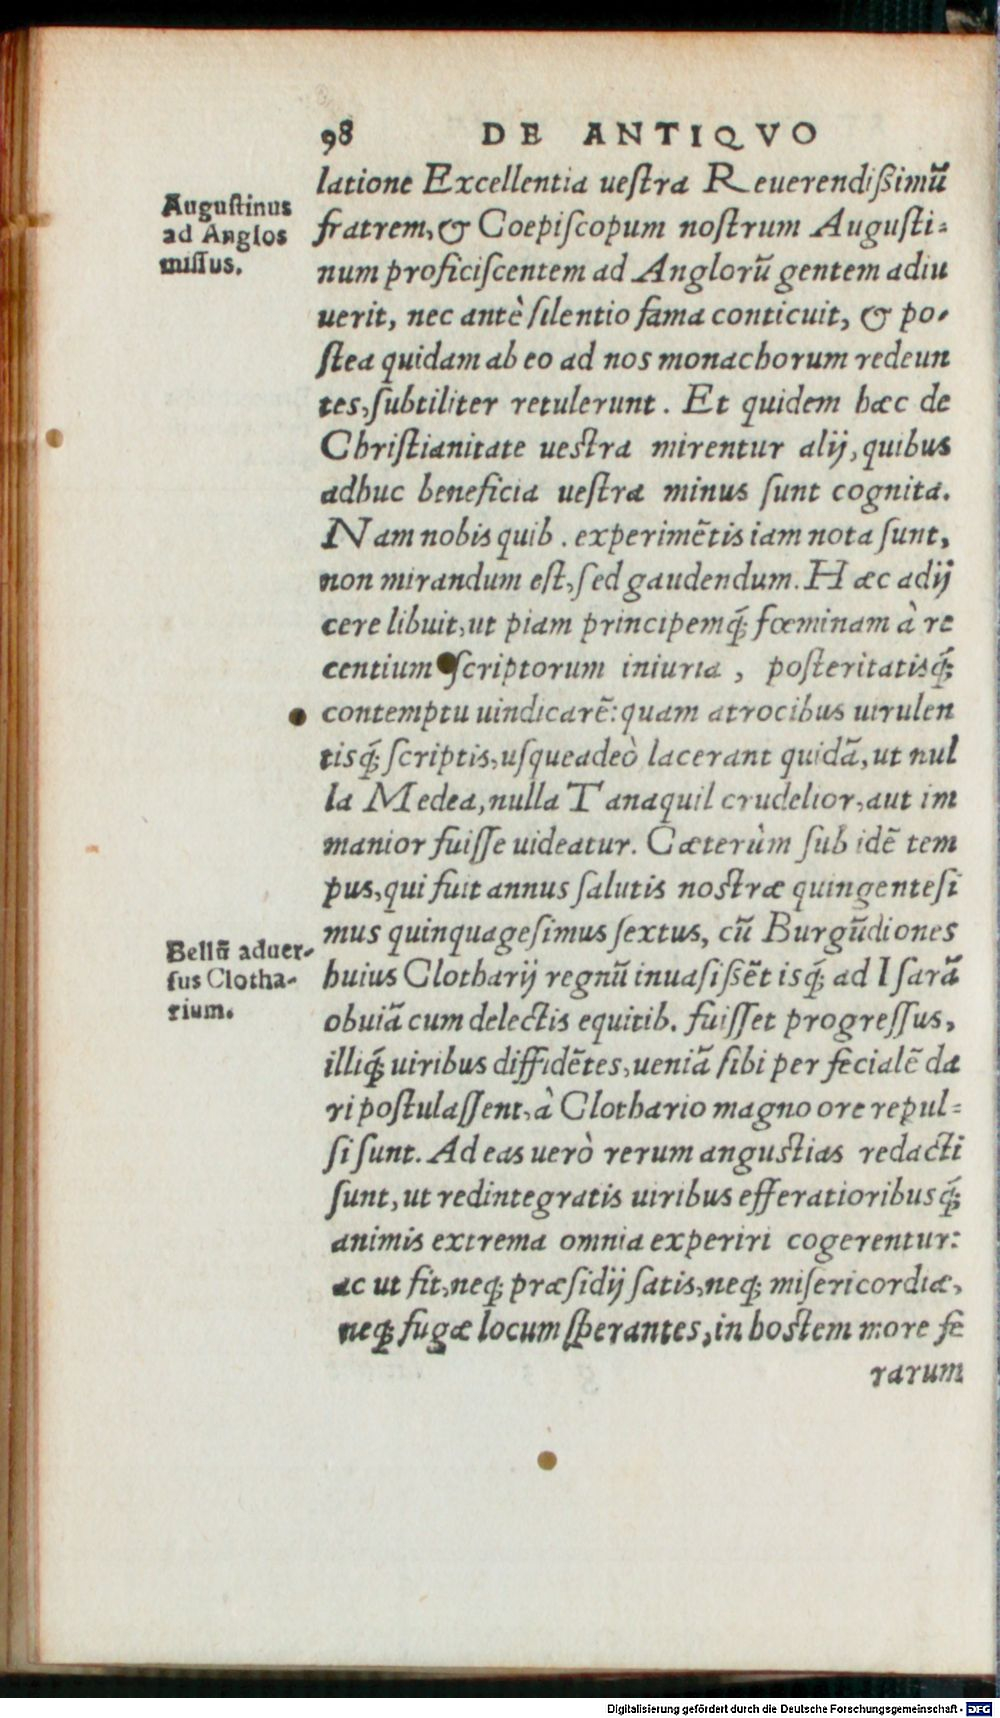 98 DE ANTIQVO
latione Excellentia ueſtra Reuerendiſsimũ
Auguſtinus
ad Anglos
miſſus.
fratrem, & Coepiſcopum noſtrum Auguſti-
num proficiſcentem ad Anglorũ gentem adiu
uerit, nec antè ſilentio fama conticuit, & po-
ſtea quidam ab eo ad nos monachorum redeun
tes, ſubtiliter retulerunt. Et quidem hæc de
Chriſtianitate ueſtra mirentur alij, quibus
adhuc beneficia ueſtra minus ſunt cognita.
Nam nobis quib. experimẽtis iam nota ſunt,
non mirandum eſt, ſed gaudendum. Hæc adij
cere libuit, ut piam principemq́; fœminam à re
centium ſcriptorum iniuria, poſteritatisq́;
contemptu uindicarẽ: quam atrocibus uirulen
tisq́; ſcriptis, uſqueadeò lacerant quidã, ut nul
la Medea, nulla Tanaquil crudelior, aut im
manior fuiſſe uideatur. Cæterùm ſub idẽ tem
pus, qui fuit annus ſalutis noſtræ quingenteſi
mus quinquageſimus ſextus, cũ Burgũdiones
Bellũ aduer-
ſus Clotha-
rium.
huius Clotharij regnũ inuaſiſsẽt isq́; ad Iſarã
obuiã cum delectis equitib. fuiſſet progreſſus,
illiq́; uiribus diffidẽtes, ueniã ſibi per fecialẽ da
ri poſtulaſſent, à Clothario magno ore repul-
ſi ſunt. Ad eas uerò rerum anguſtias redacti
ſunt, ut redintegratis uiribus efferatioribusq́;
animis extrema omnia experiri cogerentur:
ac ut fit, neq; præſidij ſatis, neq; miſericordiæ,
neq; fugæ locum ſperantes, in hoſtem more fe
rarum
Digitalisierung gefördert durch die Deutsche Forschungsgemeinschaft - DFG